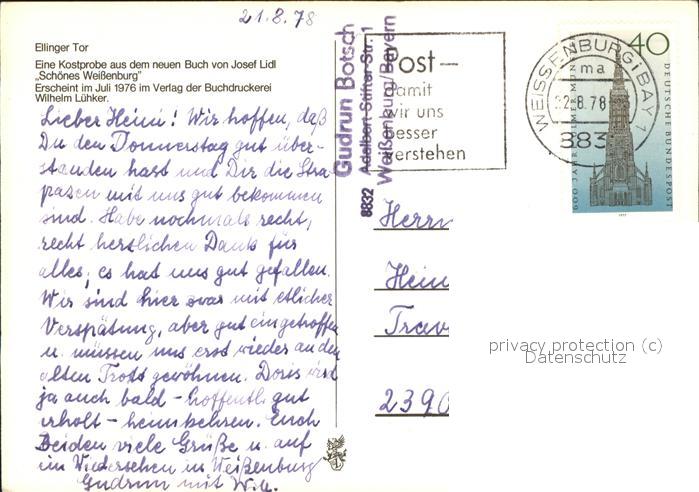 21.8.78
Ellinger Tor
Eine Kostprobe aus dem neuen Buch von Josef Lidl
„Schönes Weißenburg"
Erscheint im Juli 1976 im Verlag der Buchdruckerei
Wilhelm Lühker.
Lieber Heini! Wir hoffen, daß
Du den Donnerstag gut über-
standen hast und Dir die Stra-
pazen mit uns gut bekommen
sind. Habe nochmals recht,
recht herzlichen Dank für
alles; es hat uns gut gefallen.
Wir sind hier zwar mit etlicher
Verspätung, aber gut eingetroffen
u. müssen uns erst wieder an den
alten Trott gewöhnen. Doris wird
ja auch bald - hoffentl. gut
erholt - heimkehren. Euch
Beiden viele Grüße u. auf
ein Wiedersehen in Weißenburg
Gudrun mit Willi
Gudrun Botsch
Adalbert-Stifter-Str. 1
8832 Weißenburg/Bayern
Post-
damit
wir uns
besser
verstehen
WEISSENBURG i BAY 1
ma
22.8.78
883
40
600 JAHRE ULMER MÜNSTER
DEUTSCHE BUNDESPOST
1977
Herrn
Hein
Trav
2390
privacy protection (c)
Datenschutz